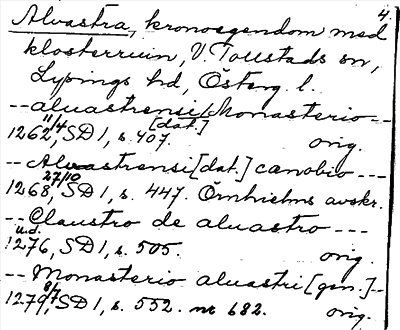 4.
Alvastra, kronoegendom med
klosterruin, V. Tollstads sn,
Lysings hd, Österg. l.
--aluastrensi [dat.] Monasterio--
1262 11/4, SD 1, s. 407. orig.
--Alvastrensi [dat.] cænobio---
1268 27/10, SD 1, s. 447. Örnhielms avskr.
--Claustro de aluastro---
1276 u.d., SD 1, s. 505. orig.
--Monasterio aluastri [gen.]--
1279 8/7, SD 1, s. 552. nr 682. orig.